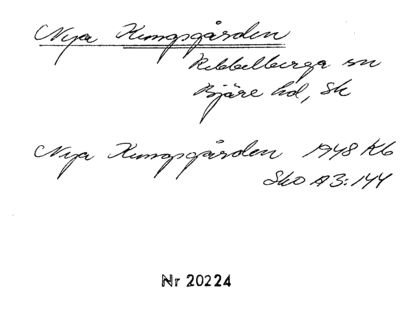 Nya Kungsgården
Rebbelberga sn
Bjäre hd, Sk
Nya Kungsgården 1948 Kb
SkO A3:144
Nr 20224